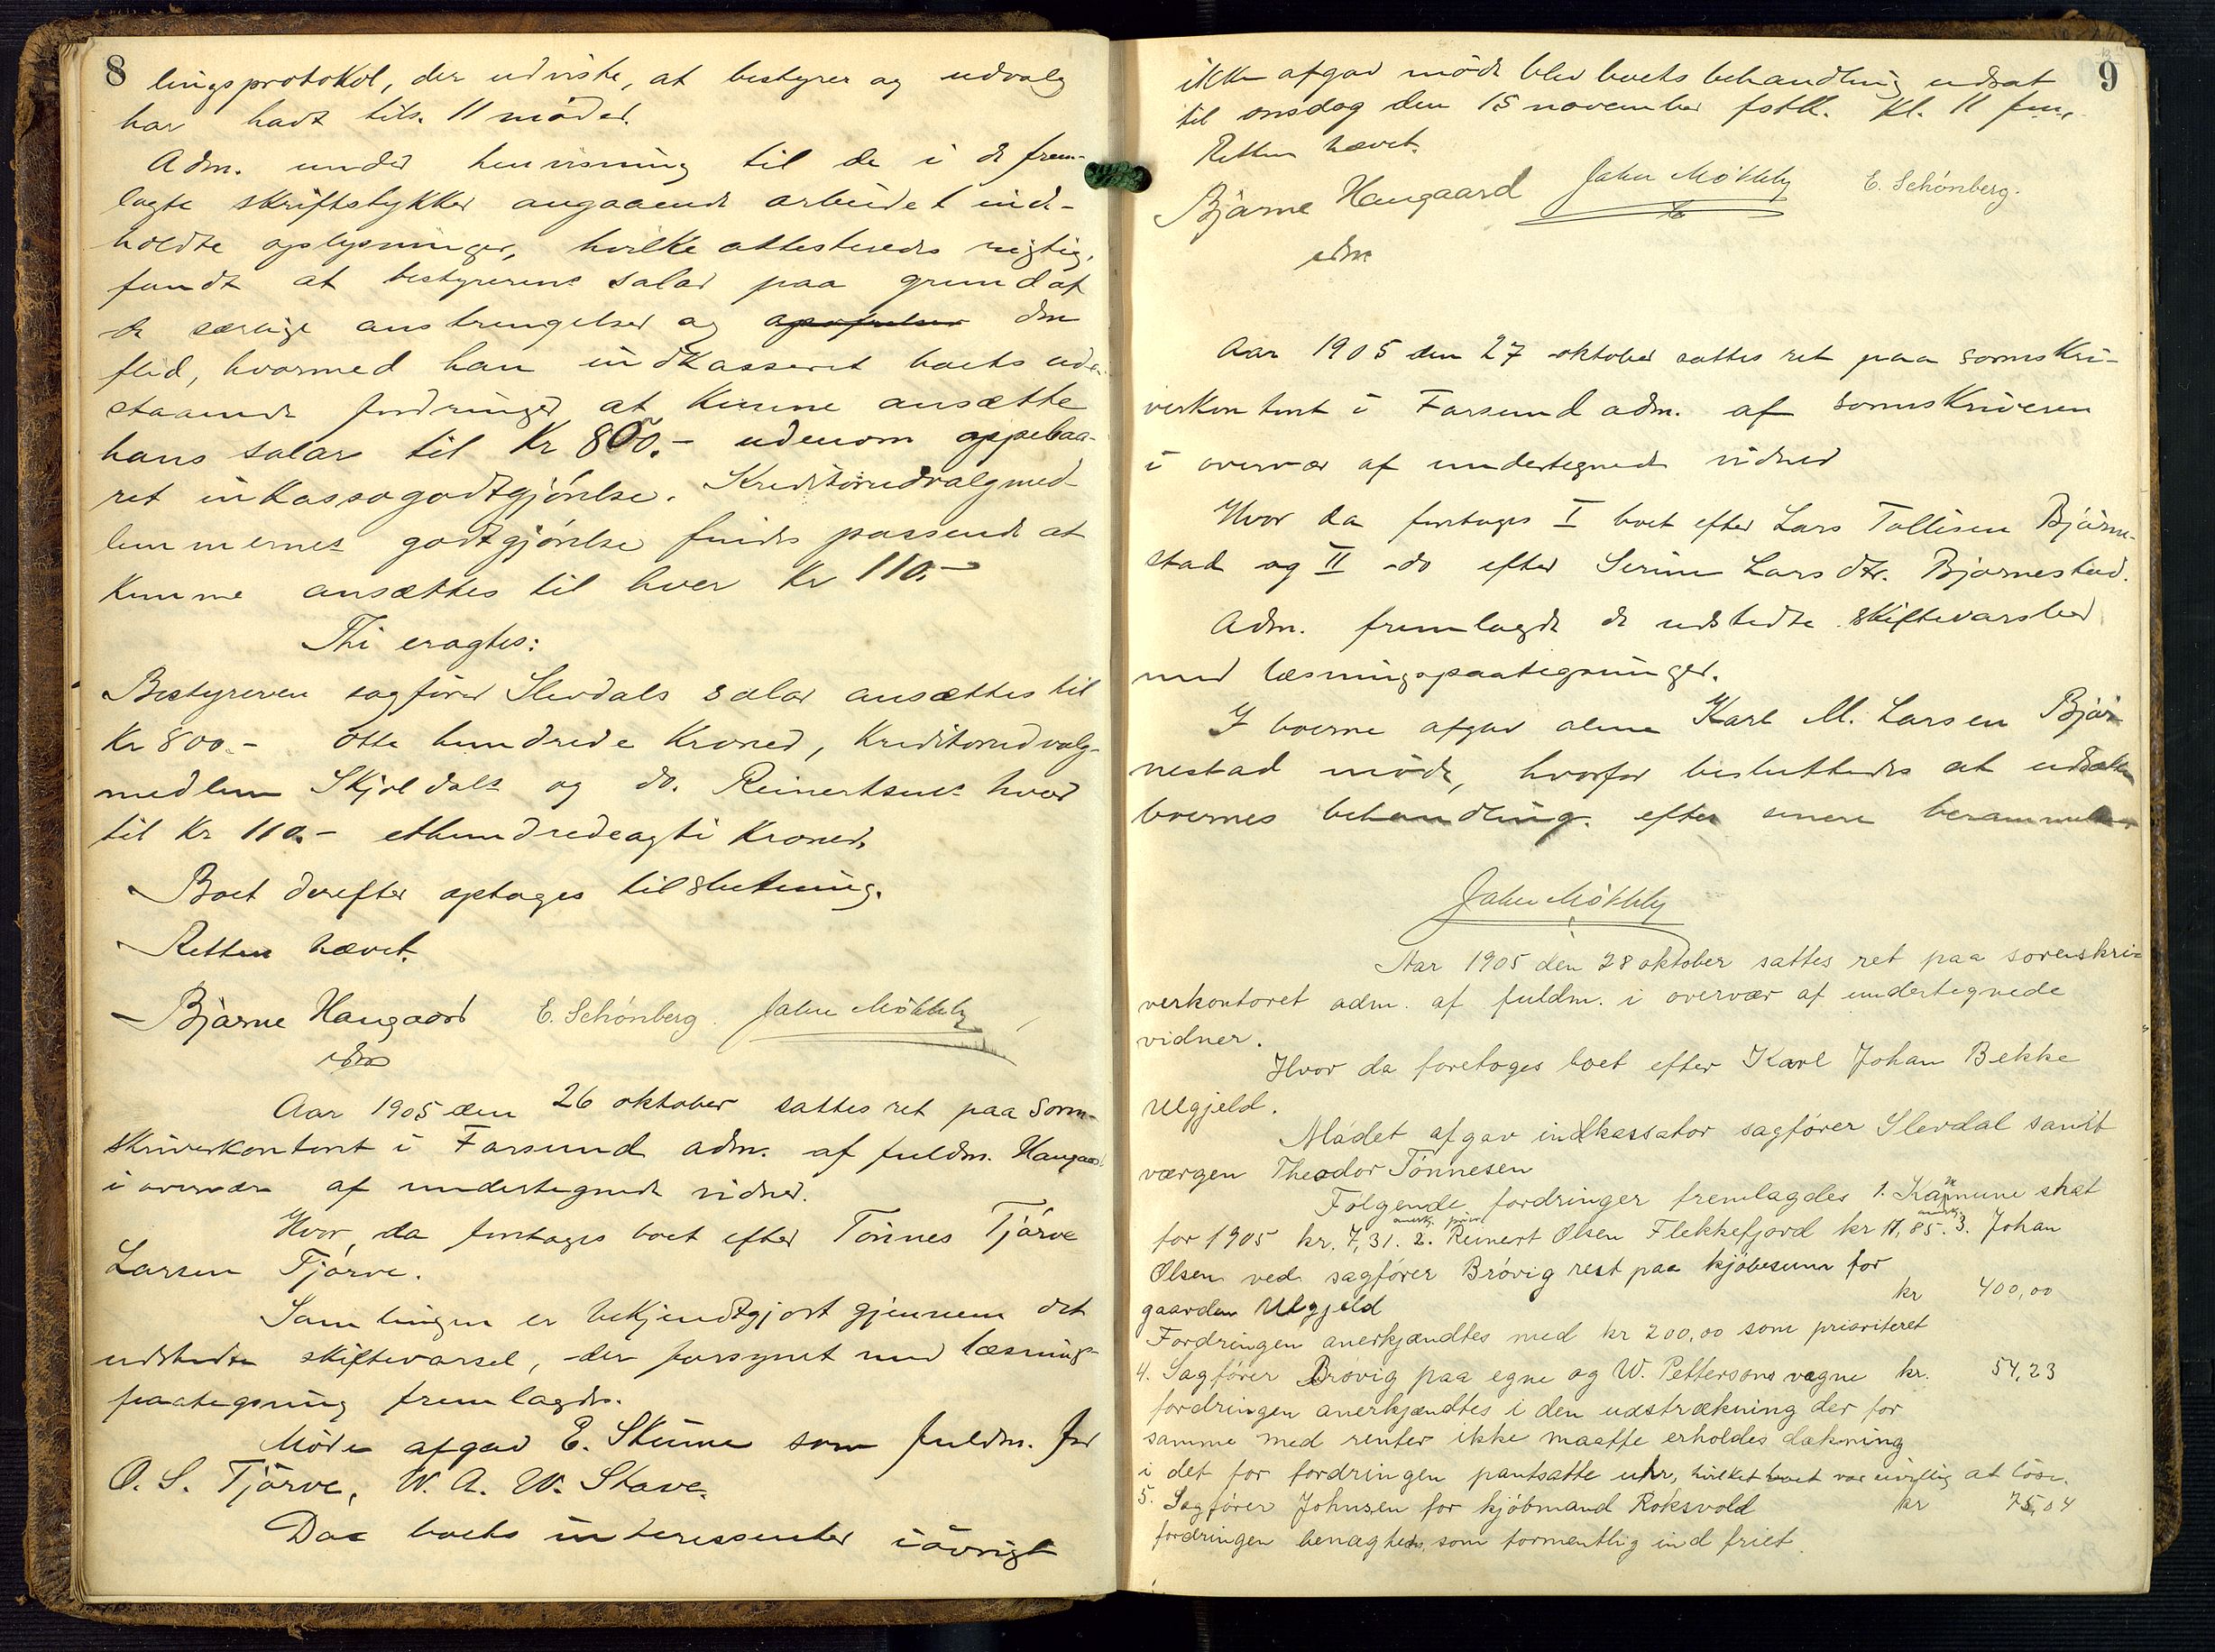 8
lingsprotokol, der udviste, at bestyrer og udvalg
har havt tils. 11 møder.
Adm. under henvisning til de i de frem-
lagte skriftstykker angaaende arbeidet inde-
holdte oplysninger, hvilke attesteredes rigtig,
fandt at bestyrerens salær paa grund af
de særlige anstrengelser og den
flid, hvormed han indkasseret boets ude-
staaende fordringer at kunne ansætte
hans salær til Kr 800.- udenom oppebaa-
ret inkassogodtgjørelse. Kreditorudvalgmed-
lemmernes godtgjørelse findes passende at
kunne ansættes til hver Kr 110.-
Thi eragtes:
Bestyreren sagfører Slevdals salær ansættes til
Kr 800.- otte hundrede Kroner, Kreditorudvalg-
medlem Skjoldals og do. Reinertsens hver
til Kr 110.- ethundredeogti Kroner.
Boet derefter optages til slutning.
Retten hævet.
Bjarne Haugaard E. Schönberg. Jahn Møkleby
edm
Aar 1905 den 26 oktober sattes ret paa soren-
skriverkontoret i Farsund adm. af fuldm. Haugaard
i overvær af undertegnede vidner.
Hvor da foretages boet efter Tönnes Tjørve
Larsen Tjørve.
Samlingen er bekjendtgjort gjennem det
udstedte skiftevarsel, der forsynet med læsnings-
paategning fremlagdes.
Møde afgav E. Stene som fuldm. for
O. S. Tjørve, W. A. W. Stave.
Da boets interessenter iøvrigt
9
ikke afgav møde blev boets behandling udsat
til onsdag den 15 november førstk. kl. 11 fm.
Retten hævet.
Bjarne Haugaard Jahn Møkleby E. Schönberg.
edm
Aar 1905 den 27 oktober sattes ret paa sorenskri-
verkontoret i Farsund adm. af sorenskriveren
i overvær af undertegnede vidner
Hvor da foretoges I boet efter Lars Tollisen Bjørne-
stad og II do efter Serine Larsdtr. Bjørnestad.
Adm. fremlagde de udstedte skiftevarsler
med læsningspaategninger.
I boerne afgav alene Karl M. Larsen Bjør-
nestad møde, hvorfor besluttedes at udsætte
boernes behandling efter senere berammelse
Jahn Møkleby
Aar 1905 den 28 oktober sattes ret paa sorenskri-
verkontoret adm. af fuldm. i overvær af undertegnede
vidner.
Hvor da foretoges boet efter Karl Johan Bekke
Ulgjeld.
Mødet afgav indkassator sagfører Slevdal samt
værgen Theodor Tønnesen
Følgende fordringer fremlagdes 1. Kommune skat
anerkj. prior.
for 1905 kr. 7,31. 2. Reinert Olsen Flekkefjord kr 11,85. 3. Johan
Olsen ved sagfører Brøvig rest paa kjøbesum for
gaarden Ulgjeld kr 400,00
Fordringen anerkjændtes med kr 200,00 som prioriteret
4. Sagfører Brøvig paa egne og W. Pettersons vegne kr. 54,23
fordringen anerkjændtes i den udstrækning der for
samme med renter ikke maatte erholdes dækning
i det for fordringen pantsatte uhr, hvilket boet var uvillig at løse.
5. Sagfører Johnsen for kjøbmand Røksvold kr 75,04
fordringen benægtedes, som formentlig indfriet.